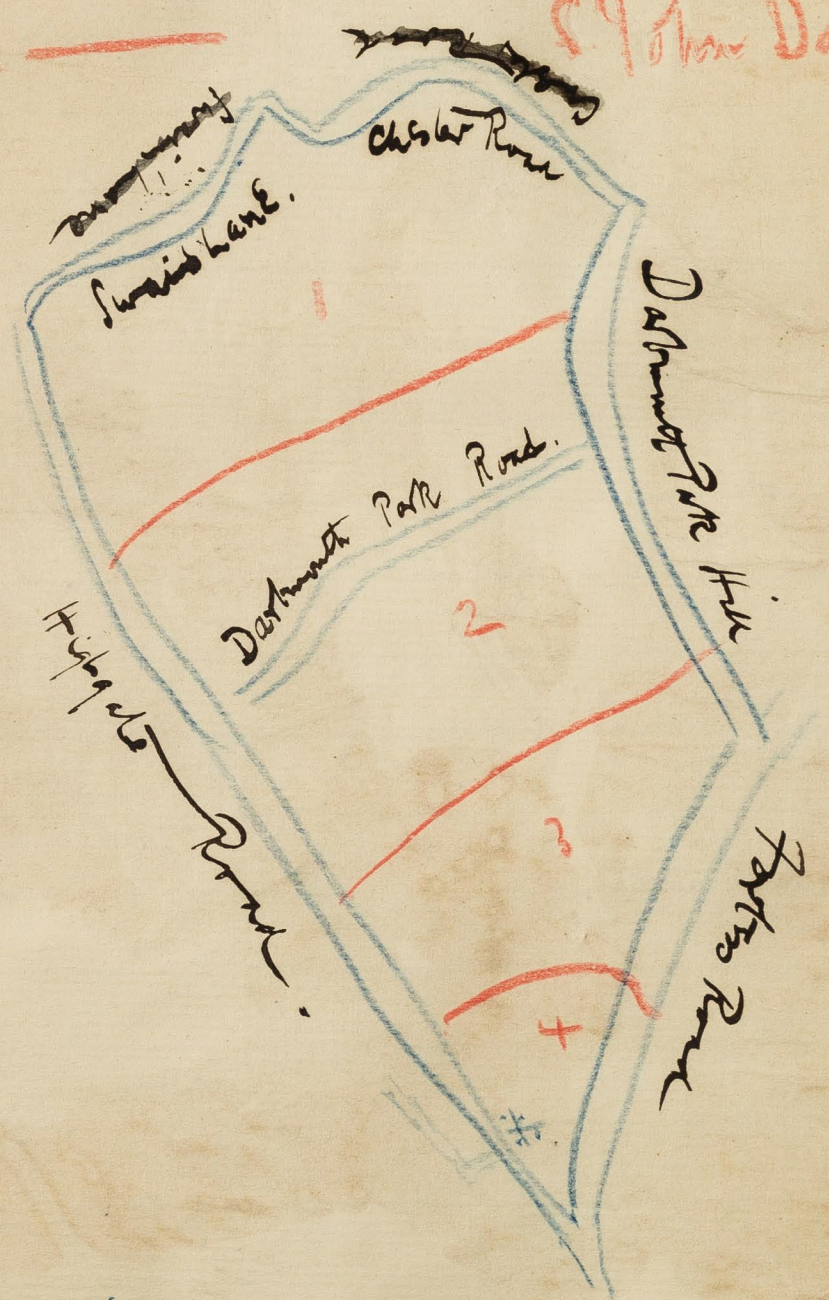 Chester Road
Swains Lane.
1
Dartmouth Park Hill
Dartmouth Park Road.
2
Highgate Road.
3
Fortess Road
4